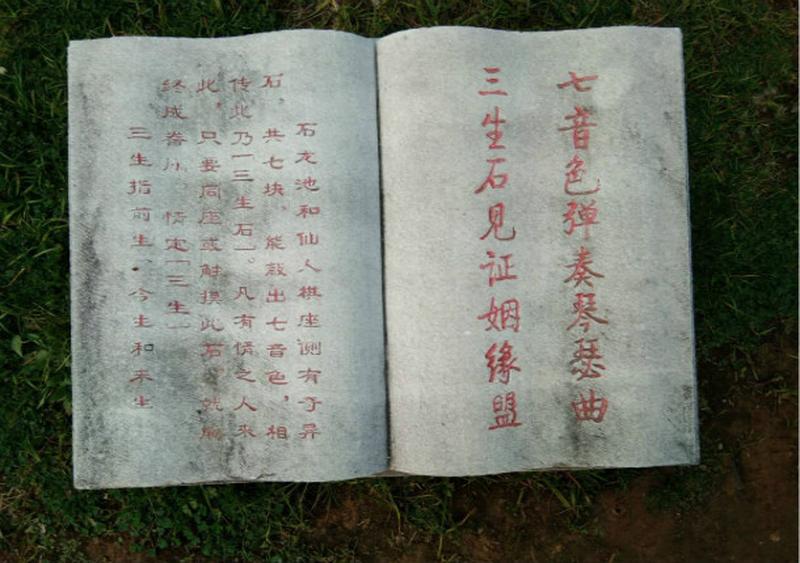 七音色弹奏琴瑟曲
三生石见证姻缘盟
石龙池和仙人棋座侧有奇异
石，共七块，能敲出七音色，相
传此乃「三生石」。凡有情之人来
此，只要同座或触摸此石，就能
终成眷从，情定「三生」
三生指前生、今生和未生